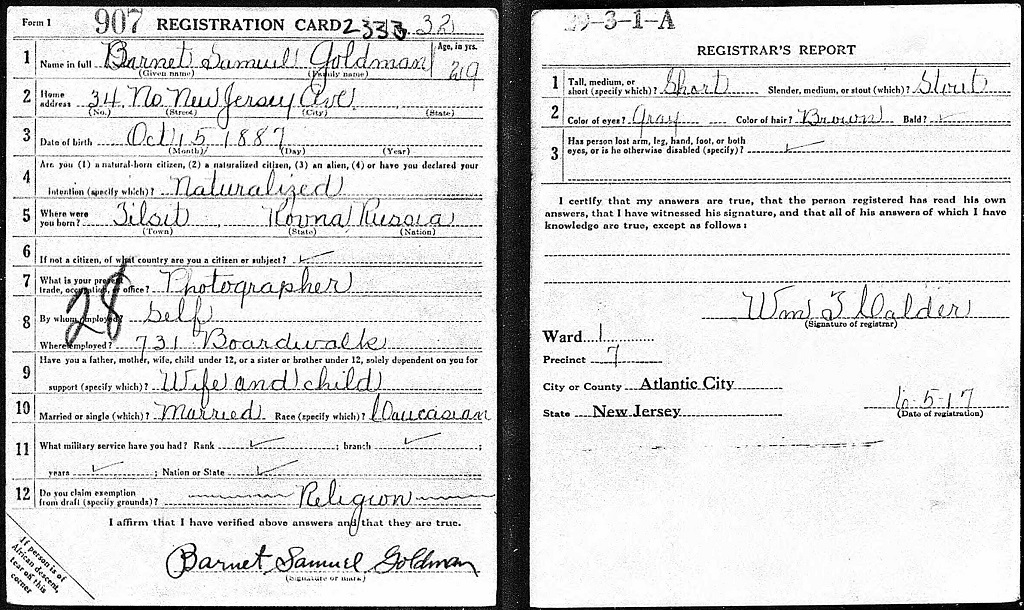 Form 1 907 REGISTRATION CARD 2333 32
1 Name in full Barnet Samuel Goldman Age, in yrs. 29
(Given name) (Family name)
2 Home address 34 No New Jersey Ave
(No.) (Street) (City) (State)
3 Date of birth Oct 15 1887
(Month) (Day) (Year)
4 Are you (1) a natural-born citizen, (2) a naturalized citizen, (3) an alien, (4) or have you declared your
intention (specify which)? Naturalized
5 Where were you born? Tilsit Kovna Russia
(Town) (State) (Nation)
6 If not a citizen, of what country are you a citizen or subject? ✓
7 What is your present trade, occupation, or office? Photographer
28
8 By whom employed? Self
Where employed? 731 Boardwalk
9 Have you a father, mother, wife, child under 12, or a sister or brother under 12, solely dependent on you for
support (specify which)? Wife and child
10 Married or single (which)? Married Race (specify which)? Caucasian
11 What military service have you had? Rank ✓ ; branch ✓ ;
years ✓ ; Nation or State ✓
12 Do you claim exemption from draft (specify grounds)? Religion
I affirm that I have verified above answers and that they are true.
Barnet Samuel Goldman
(Signature or mark)
If person is of
African descent,
tear off this
corner
39-3-1-A
REGISTRAR'S REPORT
1 Tall, medium, or short (specify which)? Short Slender, medium, or stout (which)? Stout
2 Color of eyes? Gray Color of hair? Brown Bald? ✓
3 Has person lost arm, leg, hand, foot, or both
eyes, or is he otherwise disabled (specify)? ✓
I certify that my answers are true, that the person registered has read his own
answers, that I have witnessed his signature, and that all of his answers of which I have
knowledge are true, except as follows:
Wm
(Signature of registrar)
Ward 1
Precinct 7
City or County Atlantic City
State New Jersey
6-5-17
(Date of registration)